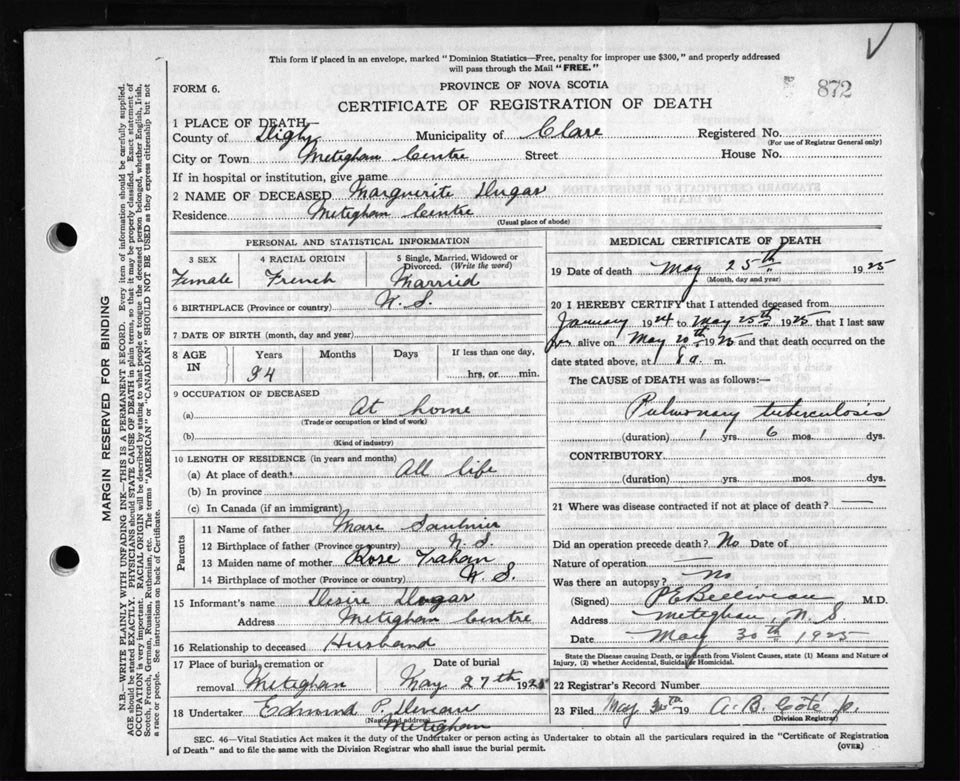 This form if placed in an envelope, marked "Dominion Statistics—Free, penalty for improper use $300," and properly addressed
will pass through the Mail "FREE."
FORM 6.
PROVINCE OF NOVA SCOTIA
872
CERTIFICATE OF REGISTRATION OF DEATH
1 PLACE OF DEATH
County of Digby Municipality of Clare Registered No.
(For use of Registrar General only)
City or Town Meteghan Centre Street House No.
If in hospital or institution, give name
2 NAME OF DECEASED Marguerite Dugas
Residence Meteghan Centre
(Usual place of abode)
PERSONAL AND STATISTICAL INFORMATION
3 SEX 4 RACIAL ORIGIN 5 Single, Married, Widowed or
Divorced. (Write the word)
Female French Married
6 BIRTHPLACE (Province or country) N. S.
7 DATE OF BIRTH (month, day and year)
8 AGE IN Years Months Days If less than one day,
34 hrs. or min.
9 OCCUPATION OF DECEASED
(a) At home
(Trade or occupation or kind of work)
(b)
(Kind of industry)
10 LENGTH OF RESIDENCE (in years and months)
(a) At place of death All life
(b) In province
(c) In Canada (if an immigrant)
Parents
11 Name of father Marc Saulnier
12 Birthplace of father (Province or country) N. S.
13 Maiden name of mother Rose Trahan
14 Birthplace of mother (Province or country) N. S.
15 Informant's name Desire Dugas
Address Meteghan Centre
16 Relationship to deceased Husband
17 Place of burial, cremation or Date of burial
removal Meteghan May 27th 1925
18 Undertaker Edmund P.
(Name and address)
Meteghan
MEDICAL CERTIFICATE OF DEATH
19 Date of death May 25th 1925
(Month, day and year)
20 I HEREBY CERTIFY that I attended deceased from
January 1924 to May 25th 1925 that I last saw
her alive on May 20th 1925 and that death occurred on the
date stated above, at a. m.
The CAUSE of DEATH was as follows:—
Pulmonary tuberculosis
(duration) 1 yrs. 6 mos. dys.
CONTRIBUTORY
(duration) yrs. mos. dys.
21 Where was disease contracted if not at place of death? —
Did an operation precede death? No Date of
Nature of operation —
Was there an autopsy? No
(Signed) P E Belliveau M.D.
Address Meteghan, N. S
Date May 30th 1925
State the Disease causing Death, or in death from Violent Causes, state (1) Means and Nature of
Injury, (2) whether Accidental, Suicidal or Homicidal.
22 Registrar's Record Number
23 Filed May 30th 19 A. B. Coté
(Division Registrar)
SEC. 46—Vital Statistics Act makes it the duty of the Undertaker or person acting as Undertaker to obtain all the particulars required in the "Certificate of Registration
of Death" and to file the same with the Division Registrar who shall issue the burial permit.
(OVER)
MARGIN RESERVED FOR BINDING
N.B.—WRITE PLAINLY WITH UNFADING INK—THIS IS A PERMANENT RECORD. Every item of information should be carefully supplied.
AGE should be stated EXACTLY. PHYSICIANS should STATE CAUSE OF DEATH in plain terms, so that it may be properly classified. Exact statement of
OCCUPATION is very important. RACIAL ORIGIN will be described by stating to what people or tongue the deceased person belonged, whether English, Irish,
Scotch, French, German, Russian, Ruthenian, etc. The terms "AMERICAN" or "CANADIAN" SHOULD NOT BE USED as they express citizenship but not
a race or people. See instructions on back of Certificate.